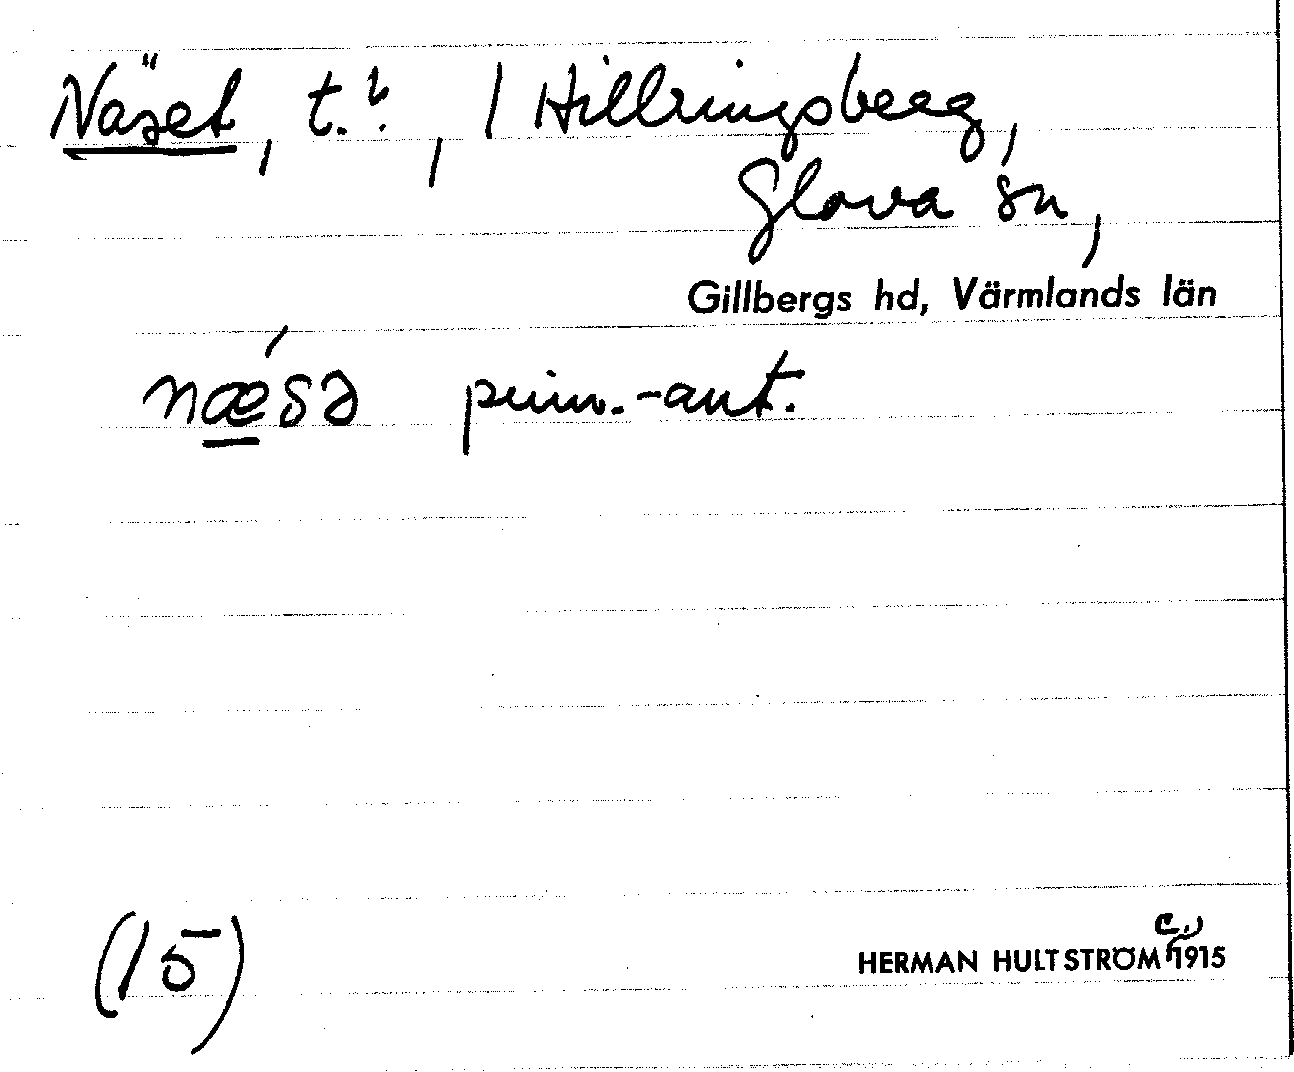 Näset, t.?, / Hillringsberg,
Glava sn,
Gillbergs hd, Värmlands län
næ̲´sə prim.-ant.
(15)
HERMAN HULTSTRÖM c. 1915